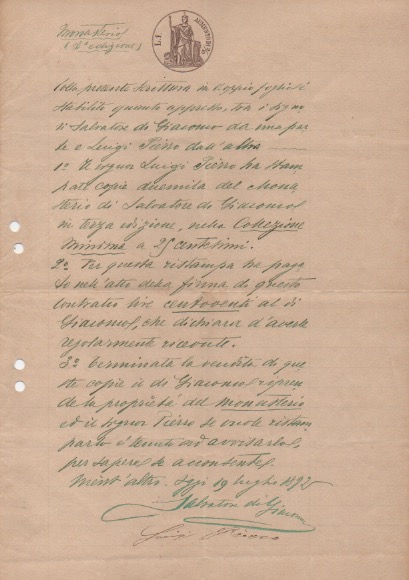 Monastero
(3ª edizione)
L. 1
Colla presente scrittura in doppio foglio si è
stabilito quanto appresso, tra i signo-
ri Salvatore di Giacomo da una par-
te e Luigi Pierro dall'altra
1º Il signor Luigi Pierro ha stam-
pate copie duemila del Mona-
stero di Salvatore di Giacomo
in terza edizione, nella Collezione
Minima a 25 centesimi.
2º Per questa ristampa ha paga-
to nell'atto della firma di questo
contratto lire centoventi al di
Giacomo, che dichiara d'averle
regolarmente ricevute.
3º Terminata la vendita di que-
ste copie il di Giacomo ripren-
de la proprietà del monastero
ed il signor Pierro se vuole ristam-
parlo è tenuto ad avvisarlo,
per sapere se acconsente.
Nient'altro. Oggi 19 luglio
Salvatore di Giacomo
Luigi Pierro